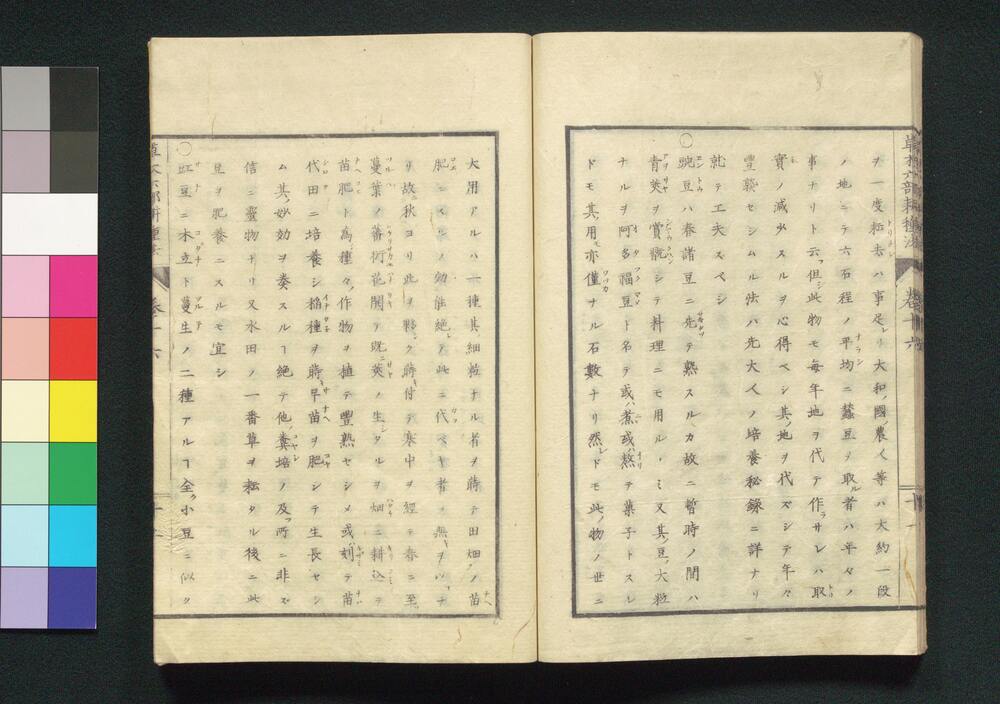 ヲ一度耘去ハ事足リ大和ノ國ノ農人等ハ大約一段
ノ地ニテ六石程ノ平均ニ蠶豆ヲ取ル者ハ年々ノ
事ナリト云フ但シ此物モ毎年地ヲ代テ作ラサレハ取
實ノ減少スルヲ心得ベシ其ノ地ヲ代ズシテ年々
豐熟セシムル法ハ先大人ノ培養秘錄ニ詳ナリ
就テ工夫スベシ
〇豌豆ハ春諸豆ニ先テ熟スルカ故ニ暫時ノ間ハ
青莢ヲ賞翫シテ料理ニモ用ル、ミ又其豆ノ大粒
ナルヲ阿多福豆ト名テ或ハ煮或ハ熬テ菓子トスレ
ドモ其用モ亦僅ナル石數ナリ然レドモ此ノ物ノ世ニ
草木六部耕種法 卷十六 十一
大用アルハ一種其細粒ナル者ヲ蒔テ田畑ノ苗
肥ニスルノ効能絶テ此ニ代ベキ者ノ無ヲ以ナ
リ故ニ秋ヨリ此ヲ夥ク蒔付テ寒中ヲ經テ春ニ至
蔓葉ノ蕃衍花開テ既ニ莢ノ生シタルヲ畑ニ耕込テ
苗肥ト為シ種々ノ作物ヲ植テ豐熟セシメ或ハ刈テ苗
代田ニ培養シ稲種ヲ蒔早苗ヲ肥シテ生長セシ
ム其ノ妙効ヲ奏スルヿ絶テ他ノ糞培ノ及フ所ニ非ズ
信ニ靈物ナリ又水田ノ一番草ヲ耘タル後ニ此
豆ヲ肥養ニスルモ宜シ
〇豇豆ニ木立ト蔓生ノ二種アルヿ全ク小豆ニ似タ